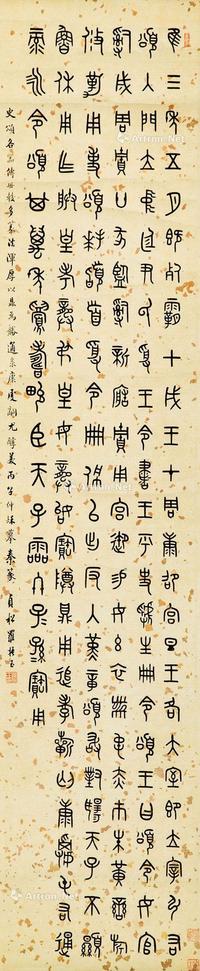 隹三年五月既死霸甲戌王才周康卲宮旦王各大室即立宰引右
頌入門立中廷尹氏受王令書王乎史虢生冊令頌王曰頌令女官
𤔲成周賈廿家監𤔲新造賈用宮御易女玄衣黹屯赤巿朱黃䜌旂
攸勒用事頌拜𩒨首受令冊佩以出反入堇章頌敢對揚天子不顯
魯休用乍朕皇考龏叔皇母龏姒寶尊鼎用追孝祈匄康𩁹屯右通
彔永令頌其萬年眉壽畯臣天子霝冬子孫寶用
史頌各器傳世 多篆法渾厚以 丙子仲 摹 貞松羅振玉